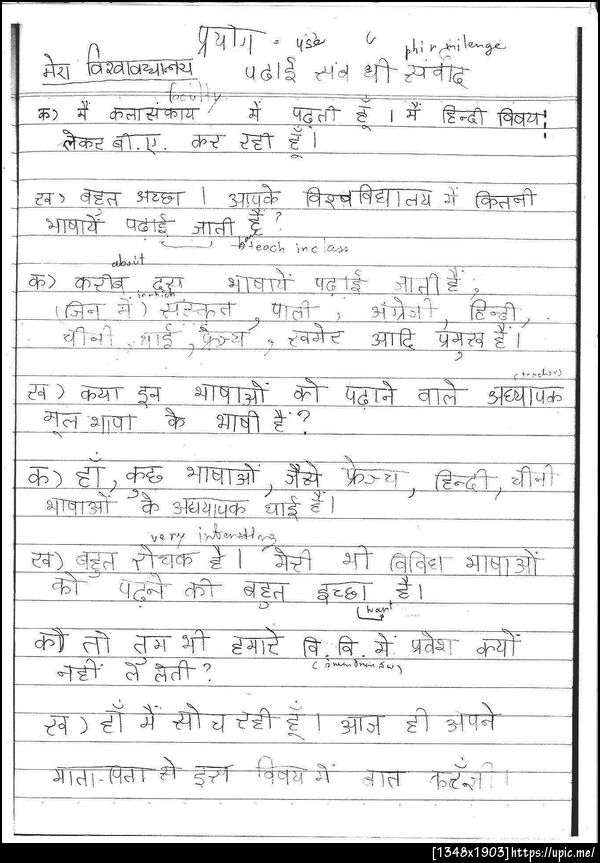 प्रयोग = use phir milenge
मेरा विश्वावध्यालय पढाई संबंधी संवाद
faculty
क) मैं कलासंकाय में पढ़ती हूँ । मैं हिन्दी विषय
लेकर बी.ए. कर रही हूँ ।
ख) बहुत अच्छा । आपके विश्वविद्यालय में कितनी
भाषायें पढाई जाती है ?
teach in class
about
क) करीब दस भाषायें पढाई जाती हैं ,
in which
(जिन में) संस्कृत , पाली , अंग्रेजी , हिन्दी ,
चीनी , थाई , फ्रेञ्च , खमेर आदि प्रमुख हैं ।
(teachers)
ख) कया इन भाषाओं को पढ़ाने वाले अध्यापक
मूल भाषा के भाषी हैं ?
क) हाँ , कुछ भाषाओं , जैसे फ्रेञ्च , हिन्दी , चीनी
भाषाओं के अध्यापक थाई हैं ।
very interesting
ख) बहुत रोचक है । मेरी भी विविध भाषाओं
को पढ़ने की बहुत इच्छा है ।
want
क) तो तुम भी हमारे वि. वि. में प्रवेश क्यों
नहीं ले लेती ?
ख) हाँ मैं सोच रही हूँ । आज ही अपने
माता-पिता से इस विषय में बात करूँगी ।
[1348x1903]https://upic.me/